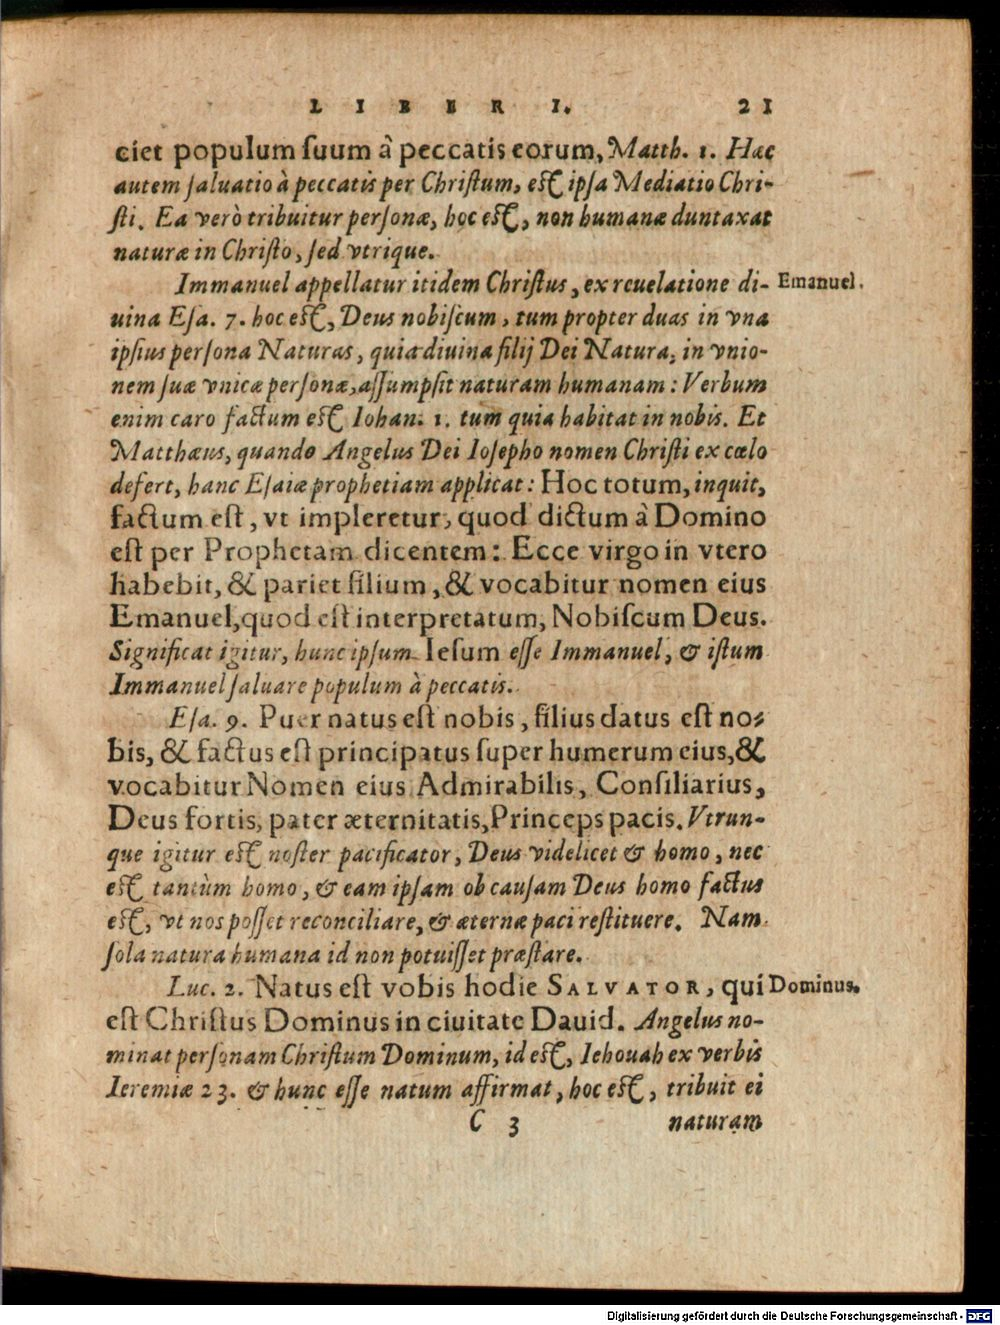 LIBER I. 21
ciet populum ſuum à peccatis eorum, Matth. 1. Hac
autem ſaluatio à peccatis per Chriſtum, eſt ipſa Mediatio Chri-
ſti. Ea verò tribuitur perſonæ, hoc eſt, non humanæ duntaxat
naturæ in Chriſto, ſed vtrique.
Immanuel appellatur itidem Chriſtus, ex reuelatione di- Emanuel.
uina Eſa. 7. hoc eſt, Deus nobiſcum, tum propter duas in vna
ipſius perſona Naturas, quia diuina filij Dei Natura, in vnio-
nem ſuæ vnicæ perſonæ, aſſumpſit naturam humanam: Verbum
enim caro factum eſt Iohan. 1. tum quia habitat in nobis. Et
Matthæus, quando Angelus Dei Ioſepho nomen Chriſti ex cœlo
defert, hanc Eſaiæ prophetiam applicat: Hoc totum, inquit,
factum eſt, vt impleretur, quod dictum à Domino
eſt per Prophetam dicentem: Ecce virgo in vtero
habebit, & pariet filium, & vocabitur nomen eius
Emanuel, quod eſt interpretatum, Nobiſcum Deus.
Significat igitur, hunc ipſum Ieſum eſſe Immanuel, & iſtum
Immanuel ſaluare populum à peccatis.
Eſa. 9. Puer natus eſt nobis, filius datus eſt no-
bis, & factus eſt principatus ſuper humerum eius, &
vocabitur Nomen eius Admirabilis, Conſiliarius,
Deus fortis, pater æternitatis, Princeps pacis. Vtrun-
que igitur eſt noſter pacificator, Deus videlicet & homo, nec
eſt tantùm homo, & eam ipſam ob cauſam Deus homo factus
eſt, vt nos poſſet reconciliare, & æternæ paci reſtituere. Nam
ſola natura humana id non potuiſſet præſtare.
Luc. 2. Natus eſt vobis hodie SALVATOR, qui Dominus.
eſt Chriſtus Dominus in ciuitate Dauid. Angelus no-
minat perſonam Chriſtum Dominum, id eſt, Iehouah ex verbis
Ieremiæ 23. & hunc eſſe natum affirmat, hoc eſt, tribuit ei
C 3 naturam
Digitalisierung gefördert durch die Deutsche Forschungsgemeinschaft - DFG